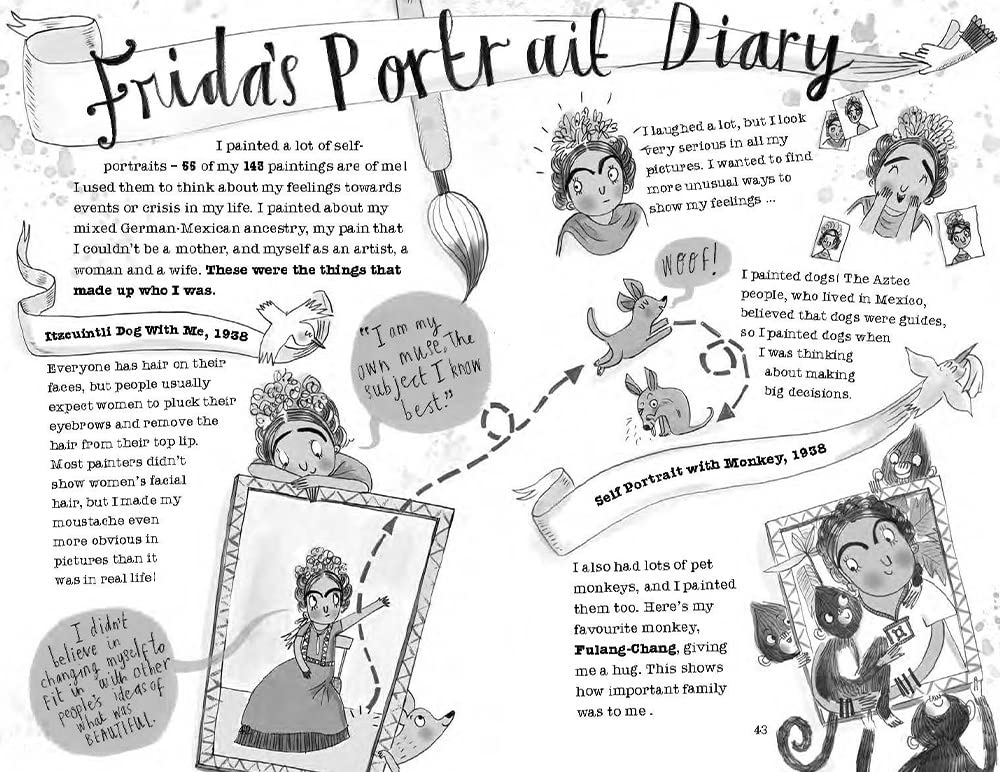 Frida's Portrait Diary
I painted a lot of self-
portraits – 55 of my 143 paintings are of me!
I used them to think about my feelings towards
events or crisis in my life. I painted about my
mixed German-Mexican ancestry, my pain that
I couldn't be a mother, and myself as an artist, a
woman and a wife. These were the things that
made up who I was.
Itzcuintli Dog With Me, 1938
Everyone has hair on their
faces, but people usually
expect women to pluck their
eyebrows and remove the
hair from their top lip.
Most painters didn't
show women's facial
hair, but I made my
moustache even
more obvious in
pictures than it
was in real life!
"I am my
own muse, the
subject I know
best."
I didn't
believe in
changing myself to
fit in with other
people's ideas of
what was
BEAUTIFUL.
I laughed a lot, but I look
very serious in all my
pictures. I wanted to find
more unusual ways to
show my feelings ...
WOOF!
I painted dogs! The Aztec
people, who lived in Mexico,
believed that dogs were guides,
so I painted dogs when
I was thinking
about making
big decisions.
Self Portrait with Monkey, 1938
I also had lots of pet
monkeys, and I painted
them too. Here's my
favourite monkey,
Fulang-Chang, giving
me a hug. This shows
how important family
was to me .
43